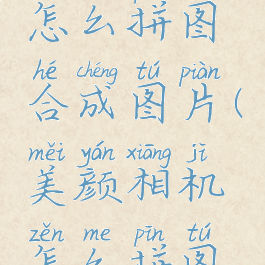 怎么拼图
hé chéng tú piàn
合成图片(
měi yán xiāng jī
美颜相机
zěn me pīn tú
怎么拼图